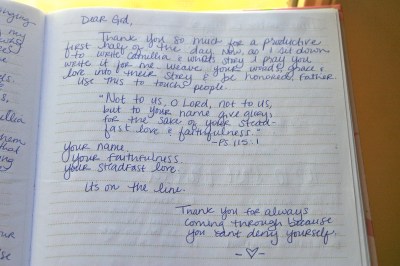 Dear God,
Thank you so much for a productive
first half of the day. Now as I sit down
to write Camellia & story I pray you
write it for me. Weave your words, grace &
love into their story & be honored, Father.
Use this to touch people.
"Not to us, O Lord, not to us,
but to your name give glory
for the sake of your stead-
fast love & faithfulness."
-PS. 115:1
your name.
your faithfulness.
your steadfast love.
its on the line.
Thank you for always
coming through because
you can't deny yourself.
my
llia
hem
had
ong
our